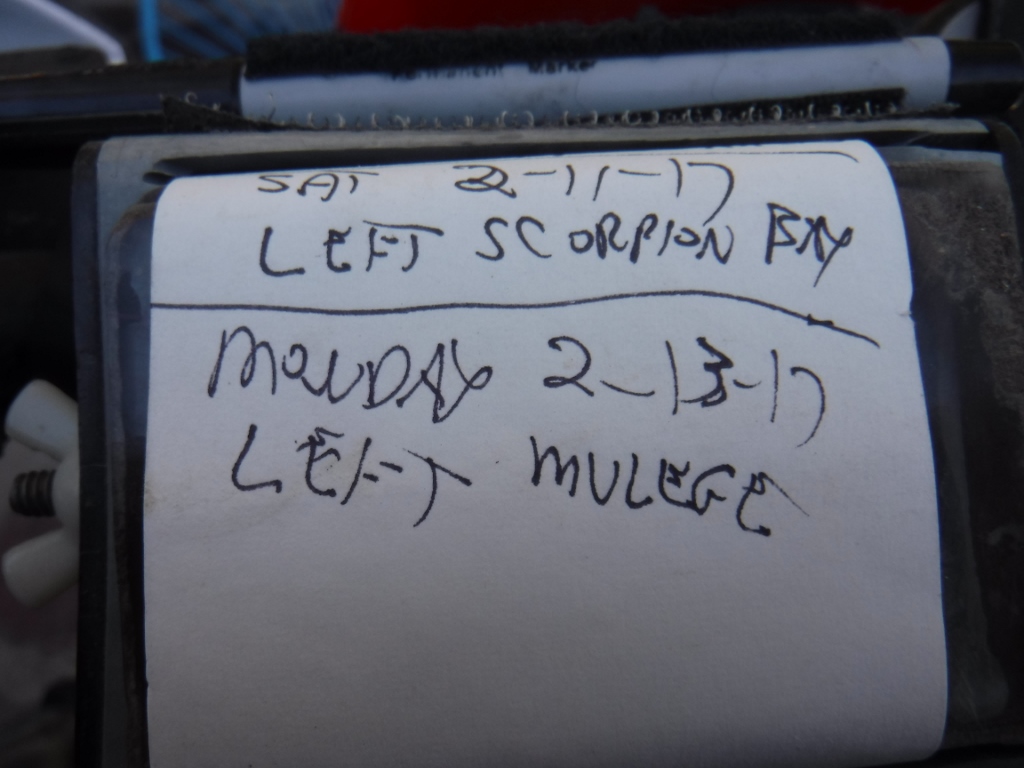 Permanent Marker
SAT 2-11-17
LEFT SCORPION BAY
MONDAY 2-13-17
LEFT MULEGE